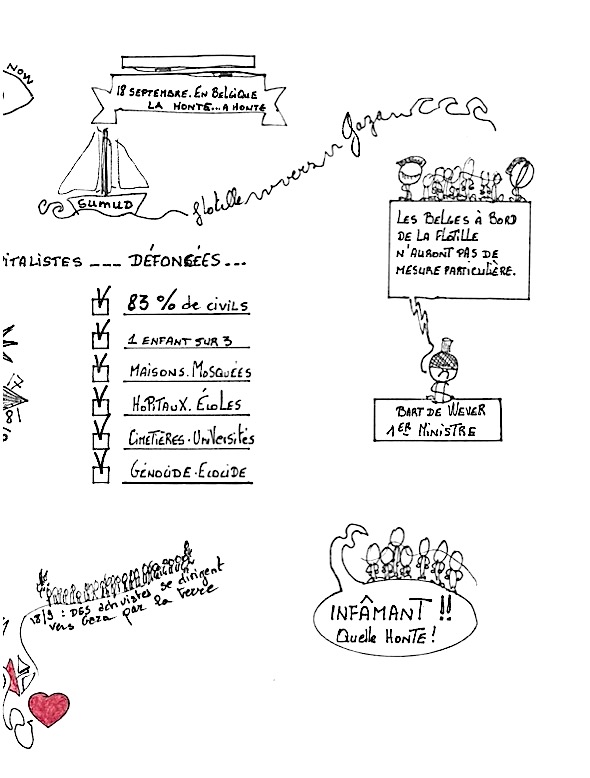 NOW
18 SEPTEMBRE. EN BELGIQUE
LA HONTE... A HONTE
SUMUD
flotille vers Gaza
LES BELGES À BORD
DE LA FLOTILLE
N'AURONT PAS DE
MESURE PARTICULIÈRE.
ITALISTES --- DÉFONCÉES...
83 % de civils
1 ENFANT SUR 3
MAISONS. MOSQUÉES
HOPITAUX. ÉCOLES
CIMETIÈRES. UNIVERSITÉS
GÉNOCIDE. ECOCIDE
BART DE WEVER
1ER MINISTRE
18/9 : DES activistes se dirigent
vers Gaza par la terre
INFÂMANT !!
Quelle HONTE !